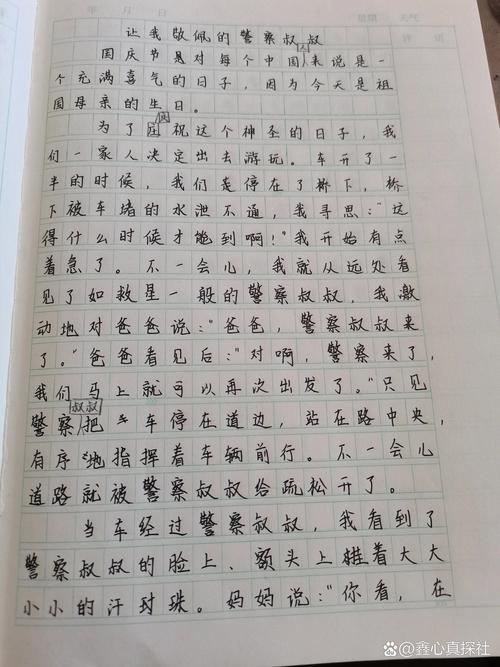 年 月 日 星期 天气
评 语
让我敬佩的警察叔叔
国庆节是对每个中国人来说是一
个充满喜气的日子，因为今天是祖
国母亲的生日。
为了庆祝这个神圣的日子，我
们一家人决定出去游玩。车开了一
半的时候，我们是停在了桥下，桥
下被车堵的水泄不通，我寻思：“这
得什么时候才能到啊！”我开始有点
着急了。不一会儿，我就从远处看
见了如救星一般的警察叔叔，我激
动地对爸爸说：“爸爸，警察叔叔来
了。”爸爸看见后：“对啊，警察来了，
我们马上就可以再次出发了。”只见
警察叔叔把车停在道边，站在路中央，
有序地指挥着车辆前行。不一会儿
道路就被警察叔叔给疏松开了。
当车经过警察叔叔，我看到了
警察叔叔的脸上、额头上挂着大大
小小的汗珠。妈妈说：“你看，在
@鑫心真探社